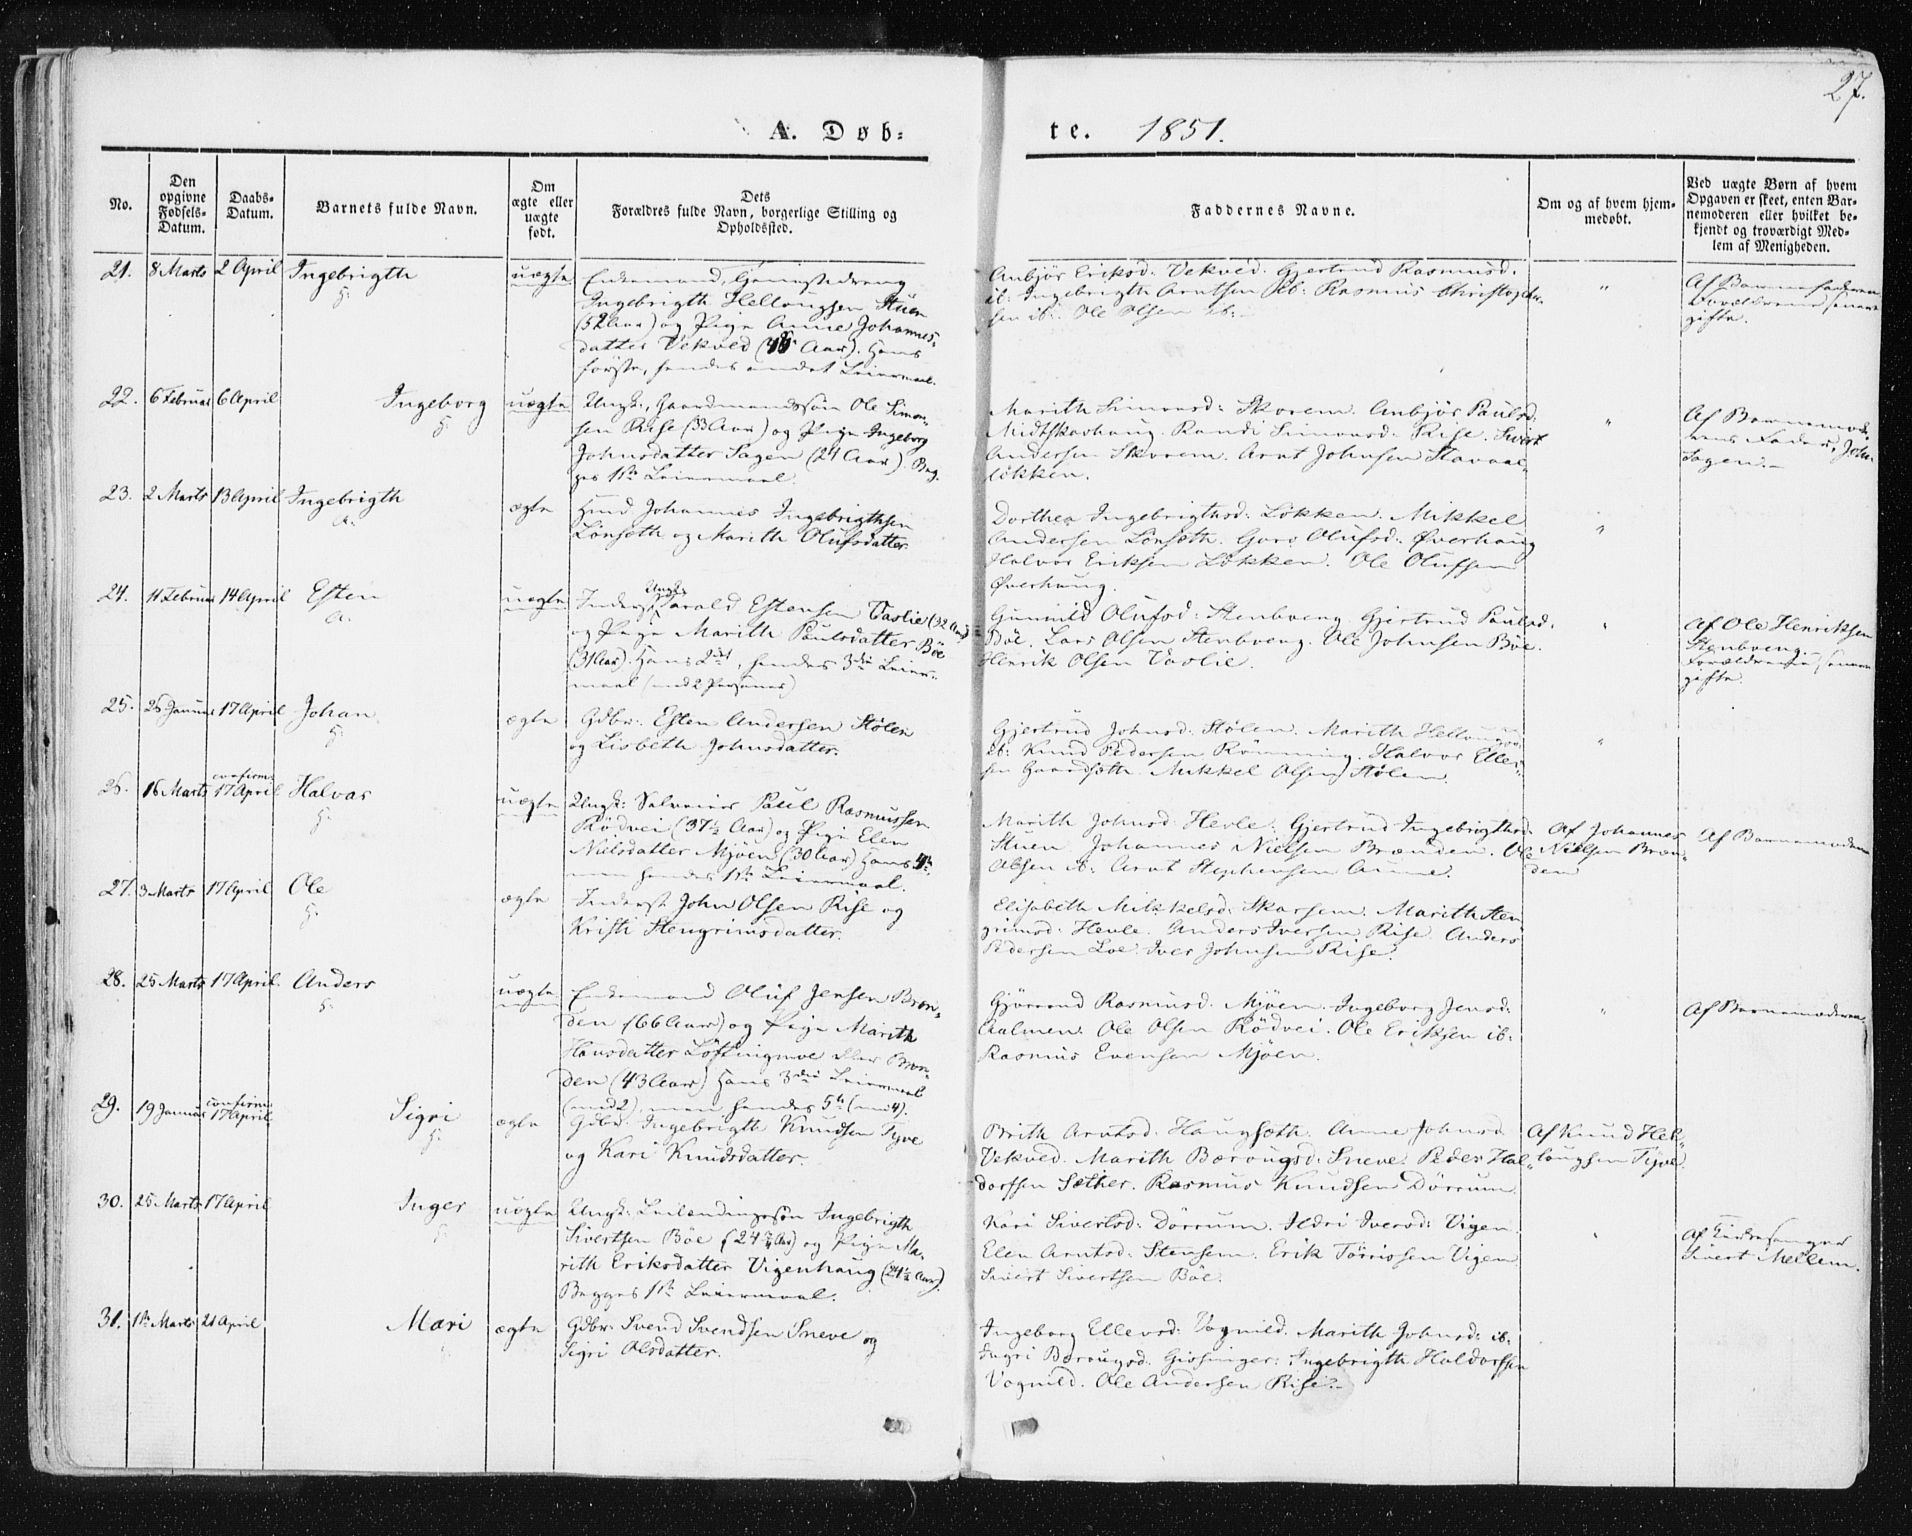 27.
A. Døb-
te. 1851.
No.
Den opgivne Fødsels-Datum.
Daabs-Datum.
Barnets fulde Navn.
Om ægte eller uægte født.
Dets
Forældres fulde Navn, borgerlige Stilling og
Opholdssted.
Faddernes Navne.
Om og af hvem hjem-
medøbt.
Ved uægte Børn af hvem
Opgaven er skeet, enten Bar-
nemoderen eller hvilket be-
kjendt og troværdigt Med-
lem af Menigheden.
21. 8 Marts 2 April Ingebrigth uægte Enkemand,
H:
Ingebrigth Hellougsen Stuen
(52 Aar) og Pige Anne Johannes-
datter Vekved ( Aar). Hans
første, hendes andet Leiermaal.
Anbjør Eriksd: Vekved. Gjertrud Rasmusd:
ib: Ingebrigth Arntsen ib: Rasmus Christophe-
sen ib: Ole Olsen ib:
"
Af Barnefaderen
Forældrene senere
gifte.
22. 6 Februar 6 April Ingeborg uægte Ungk:, Gaardmandssøn Ole Simon-
H:
sen Rise (33 Aar) og Pige Ingeborg
Johnsdatter Sagen (24 Aar). Beg-
ges 1ste Leiermaal.
Marith Simonsd: Skorem. Anbjør Paulsd:
Midtskoshaug. Randi Simonsd: Rise. Sivert
Andersen Skorem. Arnt Johnsen Slavaal-
løkken.
"
Af Barnemod-
erens Fader, John
Sagen.
23. 2 Marts 13 April Ingebrigth ægte Hmd Johannes Ingebrigthsen
A:
Lønseth og Marith Olufsdatter
Dorthea Ingebrigthsd: Løkken. Mikkel
Andersen Lønseth. Guro Olufsd: Øverhaug
Halvor Eriksen Løkken. Ole Olufsen
Øverhaug.
"
24. 11 Februar 14 April Esten uægte Inderst Ungk: Harald Estensen Vaslie (32 Aar)
A:
og Pige Marith Paulsdatter Böe
(31 Aar). Hans 2det, hendes 3die Leier-
maal (med 2 Personer)
Gunnild Olufsd: Stenboeng. Gjertrud Paulsd:
Böe. Lars Olsen Stenboeng. Ole Johnsen Böe.
Henrik Olsen Vaslie.
"
Af Ole Henriksen
Stenboeng.
Forældrene senere
gifte.
25. 26 Januar 17 April Johan ægte Gdbr: Esten Andersen Stølen
H:
og Lisbeth Johnsdatter.
Gjertrud Johnsd: Stølen. Marith Hellougsd:
ib: Knud Pedersen Rönning. Halvor Elle-
sen Gaardseth. Mikkel Olsen Stølen.
"
26. 16 Marts confirm: 17 April Halvar uægte Ungk: Paul Rasmussen
H:
Rödvei (37½ Aar) og Pige Elen
Nielsdatter Mjöen (30 Aar) Hans 4de
men hendes 1ste Leiermaal.
Marith Johnsd: Hevle. Gjertrud Ingebrigthsd:
Stuen. Johannes Nielsen Brænden. Ole
Olsen ib: Arnt Stephensen Aune.
Af Johannes
Nielsen Bræn-
den
Af Barnemoderen
27. 3 Marts 17 April Ole ægte Inderst John Olsen Rise og
H:
Kristi Stengrimsdatter.
Elisabeth Mikkelsd: Skarsem. Marith Sten-
grimsd: Hevle. Anders Iversen Rise. Anders
Pedersen Loe. Iver Johnsen Rise.
28. 25 Marts 17 April Anders uægte Enkemand Oluf Jensen Bræn-
H:
den (66 Aar) og Pige Marith
Hansdatter Løftingmoe eller Bræn-
den (43 Aar) Hans 3die Leiermaal
(med 2), men hendes 5te (med 4).
Gjörond Rasmusd: Mjöen. Ingeborg Jensd:
Aalmen. Ole Olsen Rödvei. Ole Eriksen ib:
Rasmus Evensen Mjöen.
"
Af Barnemoderen
29. 19 Januar confirm: 17 April Sigri ægte Gdbr: Ingebrigth Knudsen Tyve
H:
og Kari Knudsdatter.
Brith Arntsd: Haugseth. Anne Johnsd:
Vekved. Marith Bærougsd: Sneve. Peder Hal-
dorssen Sæther. Rasmus Knudsen Dörrum.
Af Knud Hel-
lougsen Tyve.
30. 25 Marts 17 April Inger uægte Ungk: Leilændingssøn Ingebrigth
H:
Sivertsen Böe (24 Aar) og Pige Ma-
rith Eriksdatter Vigenhaug (24½ Aar).
Begges 1ste Leiermaal.
Kari Sivertsd: Dörrum. Ildri Iversd: Vigen.
Elen Arntsd: Stensem. Erik Törrissen Vigen
Sivert Sivertsen Böe.
"
Af Kirkesanger
Sivert Mellem.
31. 1ste Marts 21 April Mari ægte Gdbr: Svend Svendsen Sneve og
Sigri Olsdatter.
Ingeborg Ellevsd: Vognild. Marith Johnsd: ib:
Ingri Bærougsd: Gisinger. Ingebrigth Haldorssen
Vognild. Ole Andersen Rise.